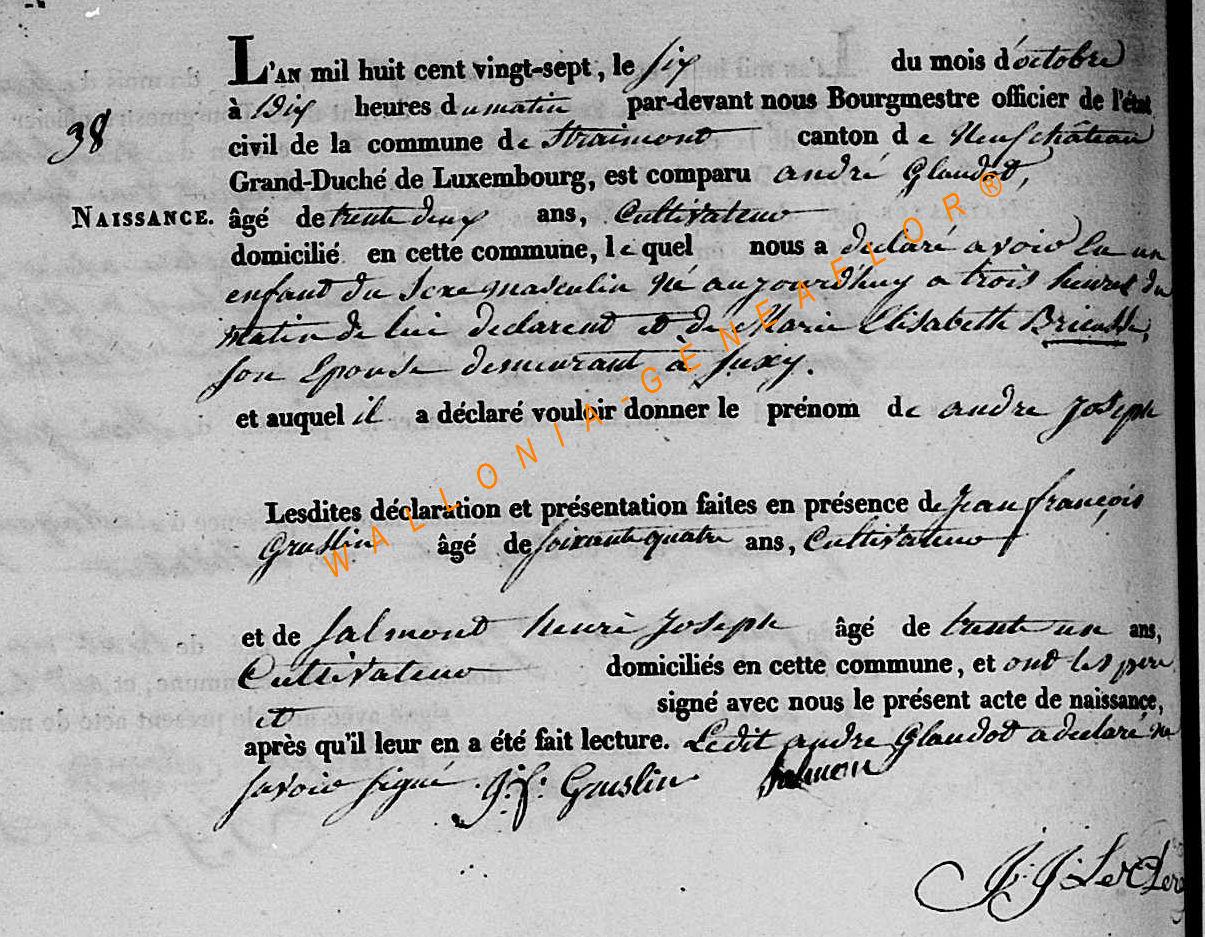 L'AN mil huit cent vingt-sept, le six du mois d'octobre
à Dix heures du matin par-devant nous Bourgmestre officier de l'état
38
civil de la commune de Straimont canton de Neufchâteau
Grand-Duché de Luxembourg, est comparu andré Glaudot,
NAISSANCE. âgé de trente deux ans, Cultivateur
domicilié en cette commune, le quel nous a declaré avoir eu un
enfant du sexe masculin né aujourd'huy a trois heures du
matin de lui declarent et de Marie Elisabeth
son Epouse demeurant à Suxy.
et auquel il a déclaré vouloir donner le prénom de andre Joseph
Lesdites déclaration et présentation faites en présence de Jean françois
Gruslin âgé de soixante quatre ans, Cultivateur
et de Salmont henri Joseph âgé de trente un ans,
Cultivateur domiciliés en cette commune, et ont les
et signé avec nous le présent acte de naissance,
après qu'il leur en a été fait lecture. Ledit andre Glaudot a declaré ne
savoir signé J. f. Gruslin Salmon
J. J. LeClerc
WALLONIA-GENEAELOR®